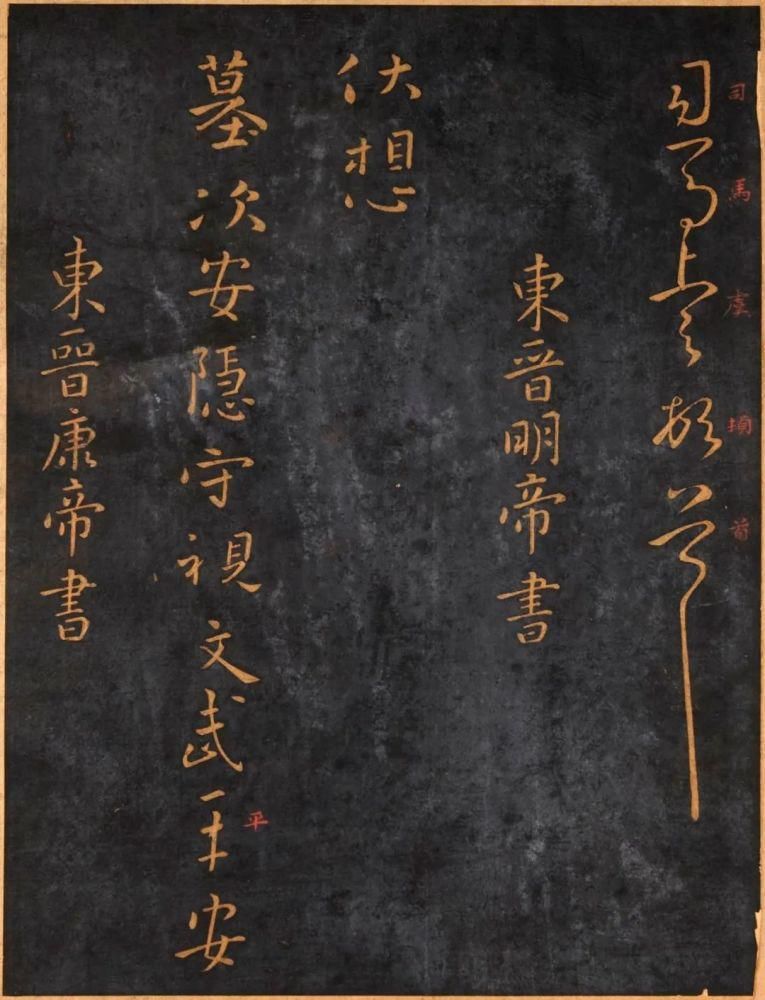 司馬虛頓首
司馬虛頓首
東晉明帝書
伏想
墓次安隱守視文武平安
平
東晉康帝書